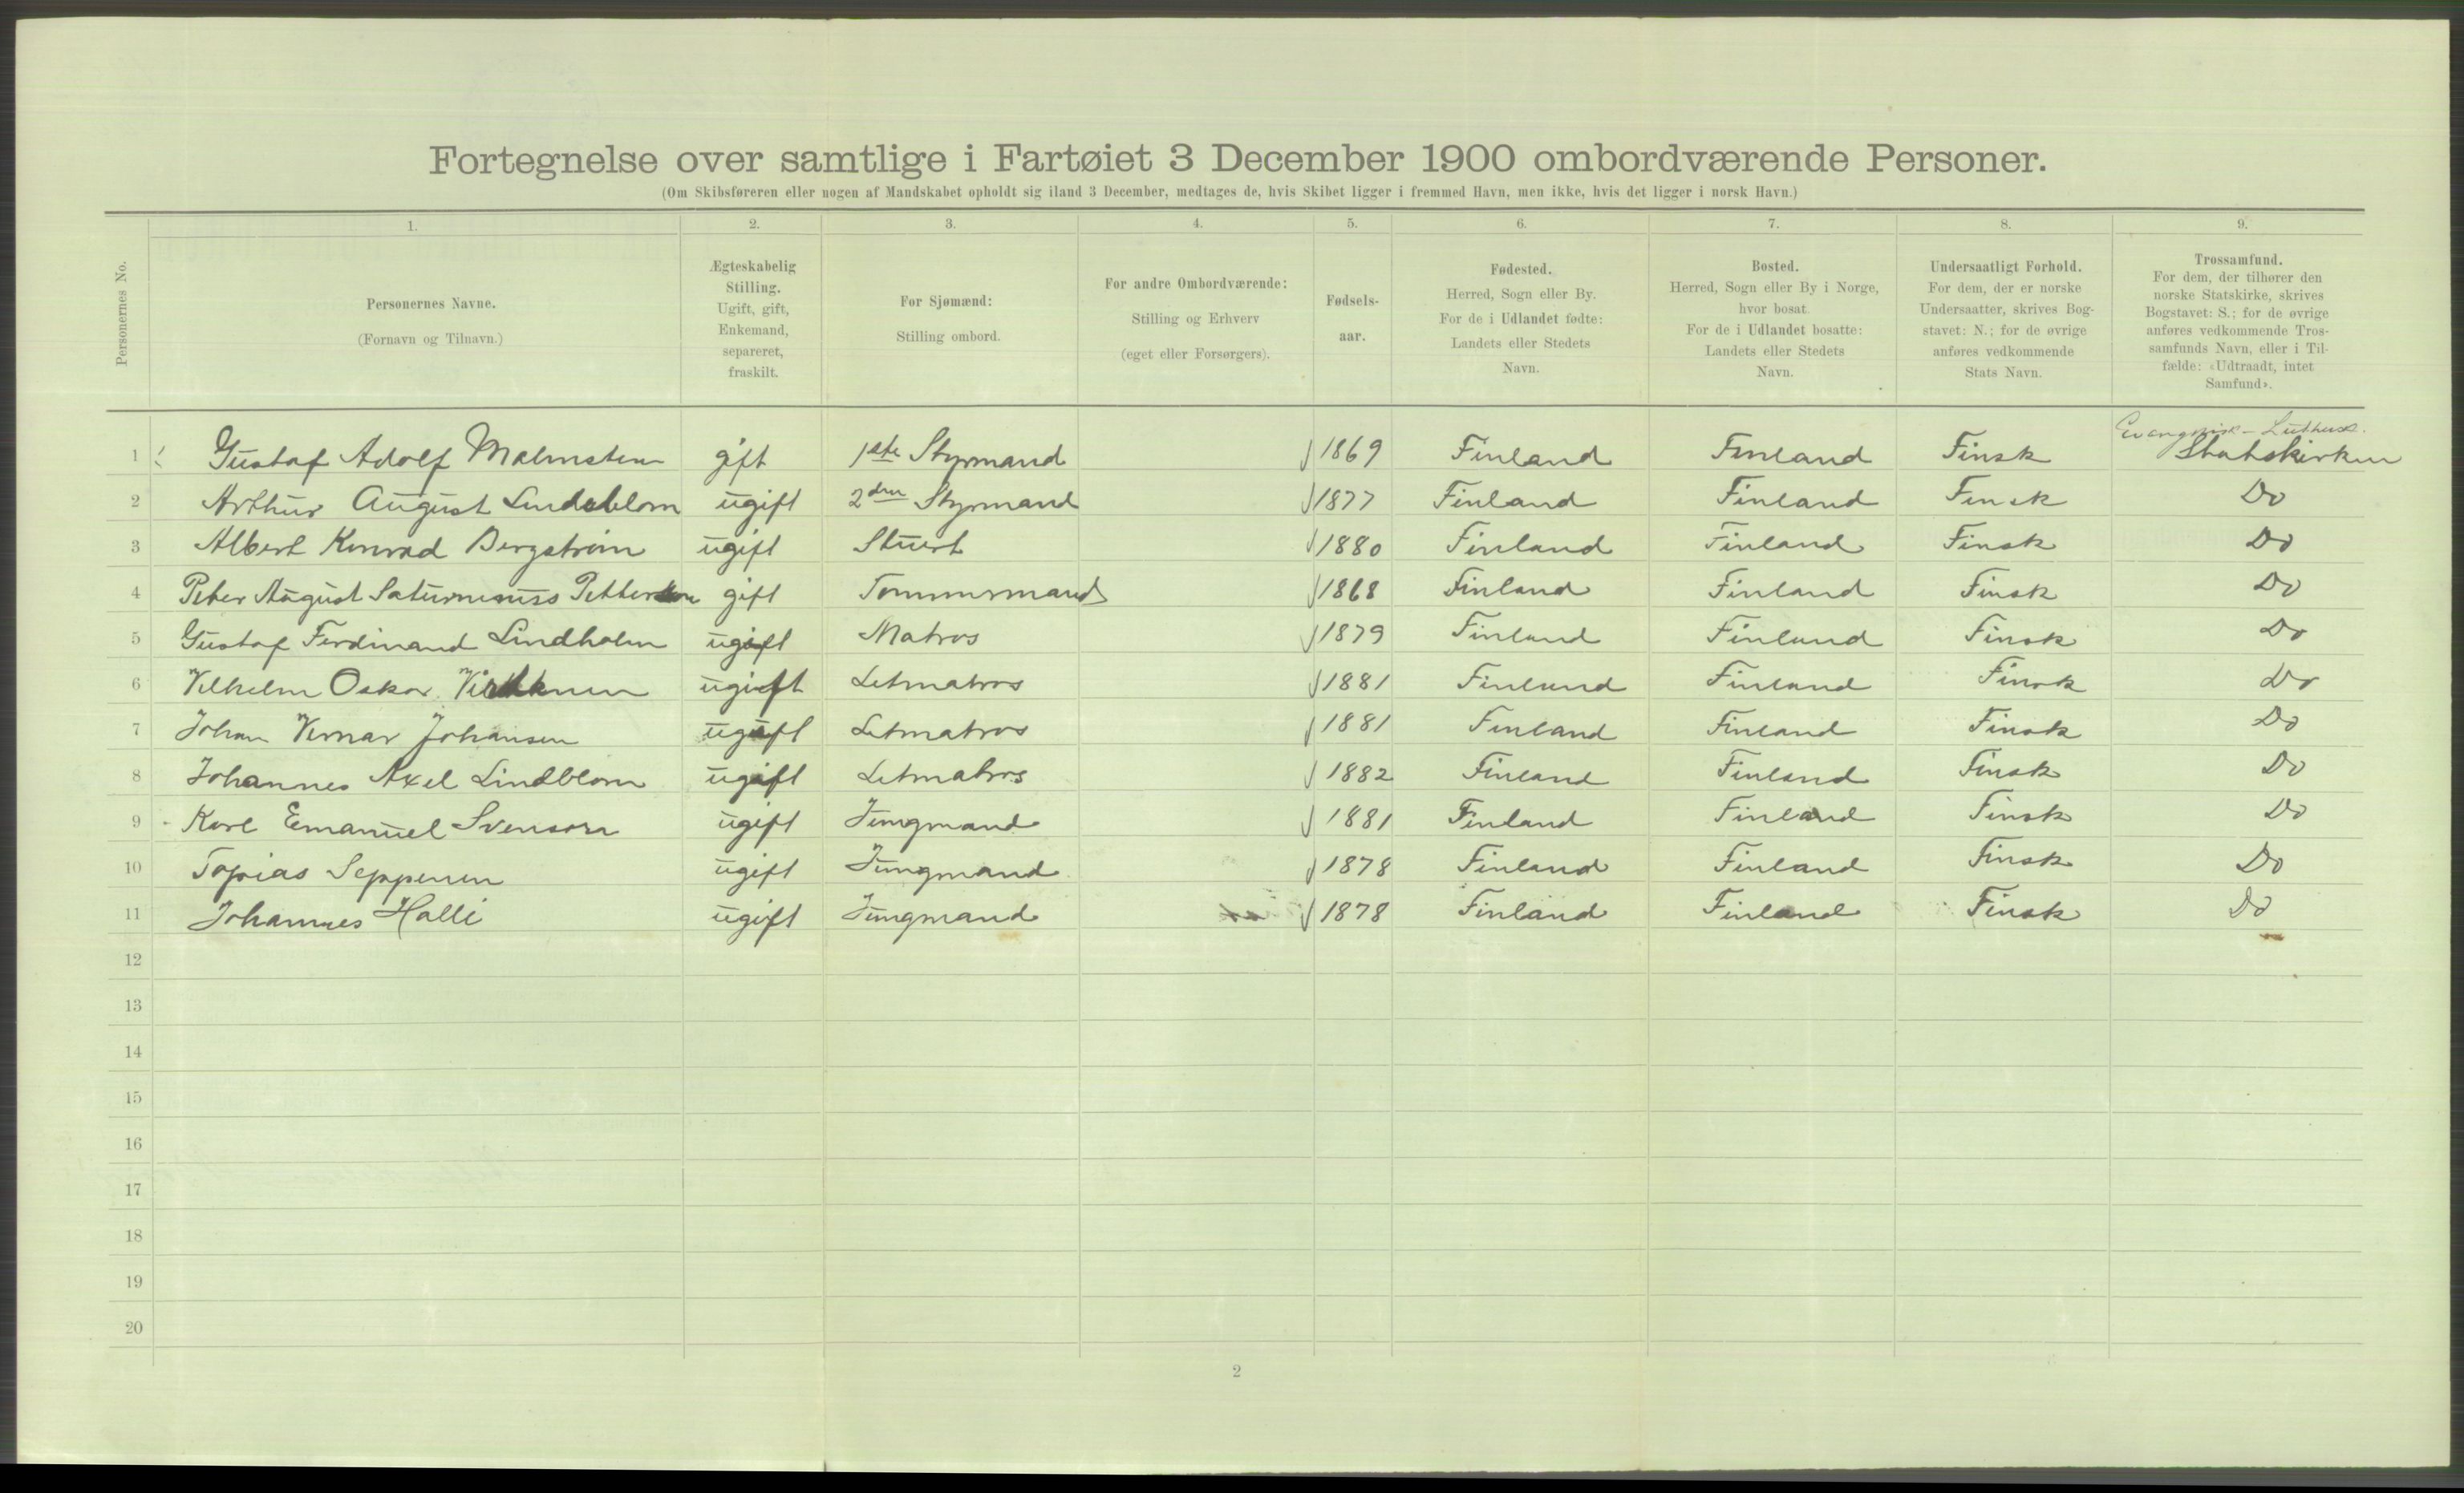 Fortegnelse over samtlige i Fartøiet 3 December 1900 ombordværende Personer.
(Om Skibsføreren eller nogen af Mandskabet opholdt sig iland 3 December, medtages de, hvis Skibet ligger i fremmed Havn, men ikke, hvis det ligger i norsk Havn.)
Personernes No.
1. 2. 3. 4. 5. 6. 7. 8. 9.
Personernes Navne.
(Fornavn og Tilnavn.)
Ægteskabelig
Stilling.
Ugift, gift,
Enkemand,
separeret,
fraskilt.
For Sjømænd:
Stilling ombord.
For andre Ombordværende:
Stilling og Erhverv
(eget eller Forsørgers).
Fødsels-
aar.
Fødested.
Herred, Sogn eller By.
For de i Udlandet fødte:
Landets eller Stedets
Navn.
Bosted.
Herred, Sogn eller By i Norge,
hvor bosat.
For de i Udlandet bosatte:
Landets eller Stedets
Navn.
Undersaatligt Forhold.
For dem, der er norske
Undersaatter, skrives Bog-
stavet: N.; for de øvrige
anføres vedkommende
Stats Navn.
Trossamfund.
For dem, der tilhører den
norske Statskirke, skrives
Bogstavet: S.; for de øvrige
anføres vedkommende Tros-
samfunds Navn, eller i Til-
fælde: «Udtraadt, intet
Samfund».
1 Gustaf Adolf Malmsten gift 1ste Styrmand 1869 Finland Finland Finsk Statskirken
2 Arthur August Lindeblom ugift 2den Styrmand 1877 Finland Finland Finsk Do
3 Albert Konrad Bergström ugift Stuert 1880 Finland Finland Finsk Do
4 Peter August Saturninus Petterson gift Tommermand 1868 Finland Finland Finsk Do
5 Gustaf Ferdinand Lindholm ugift Matros 1879 Finland Finland Finsk Do
6 Vilhelm Oskar ugift Letmatros 1881 Finland Finland Finsk Do
7 Johan Verner Johansen ugift Letmatros 1881 Finland Finland Finsk Do
8 Johannes Axel Lindblom ugift Letmatros 1882 Finland Finland Finsk Do
9 Karl Emanuel Svenson ugift Jungmand 1881 Finland Finland Finsk Do
10 Topias Seppenen ugift Jungmand 1878 Finland Finland Finsk Do
11 Johannes Halli ugift Jungmand 1878 Finland Finland Finsk Do
12
13
14
15
16
17
18
19
20
2